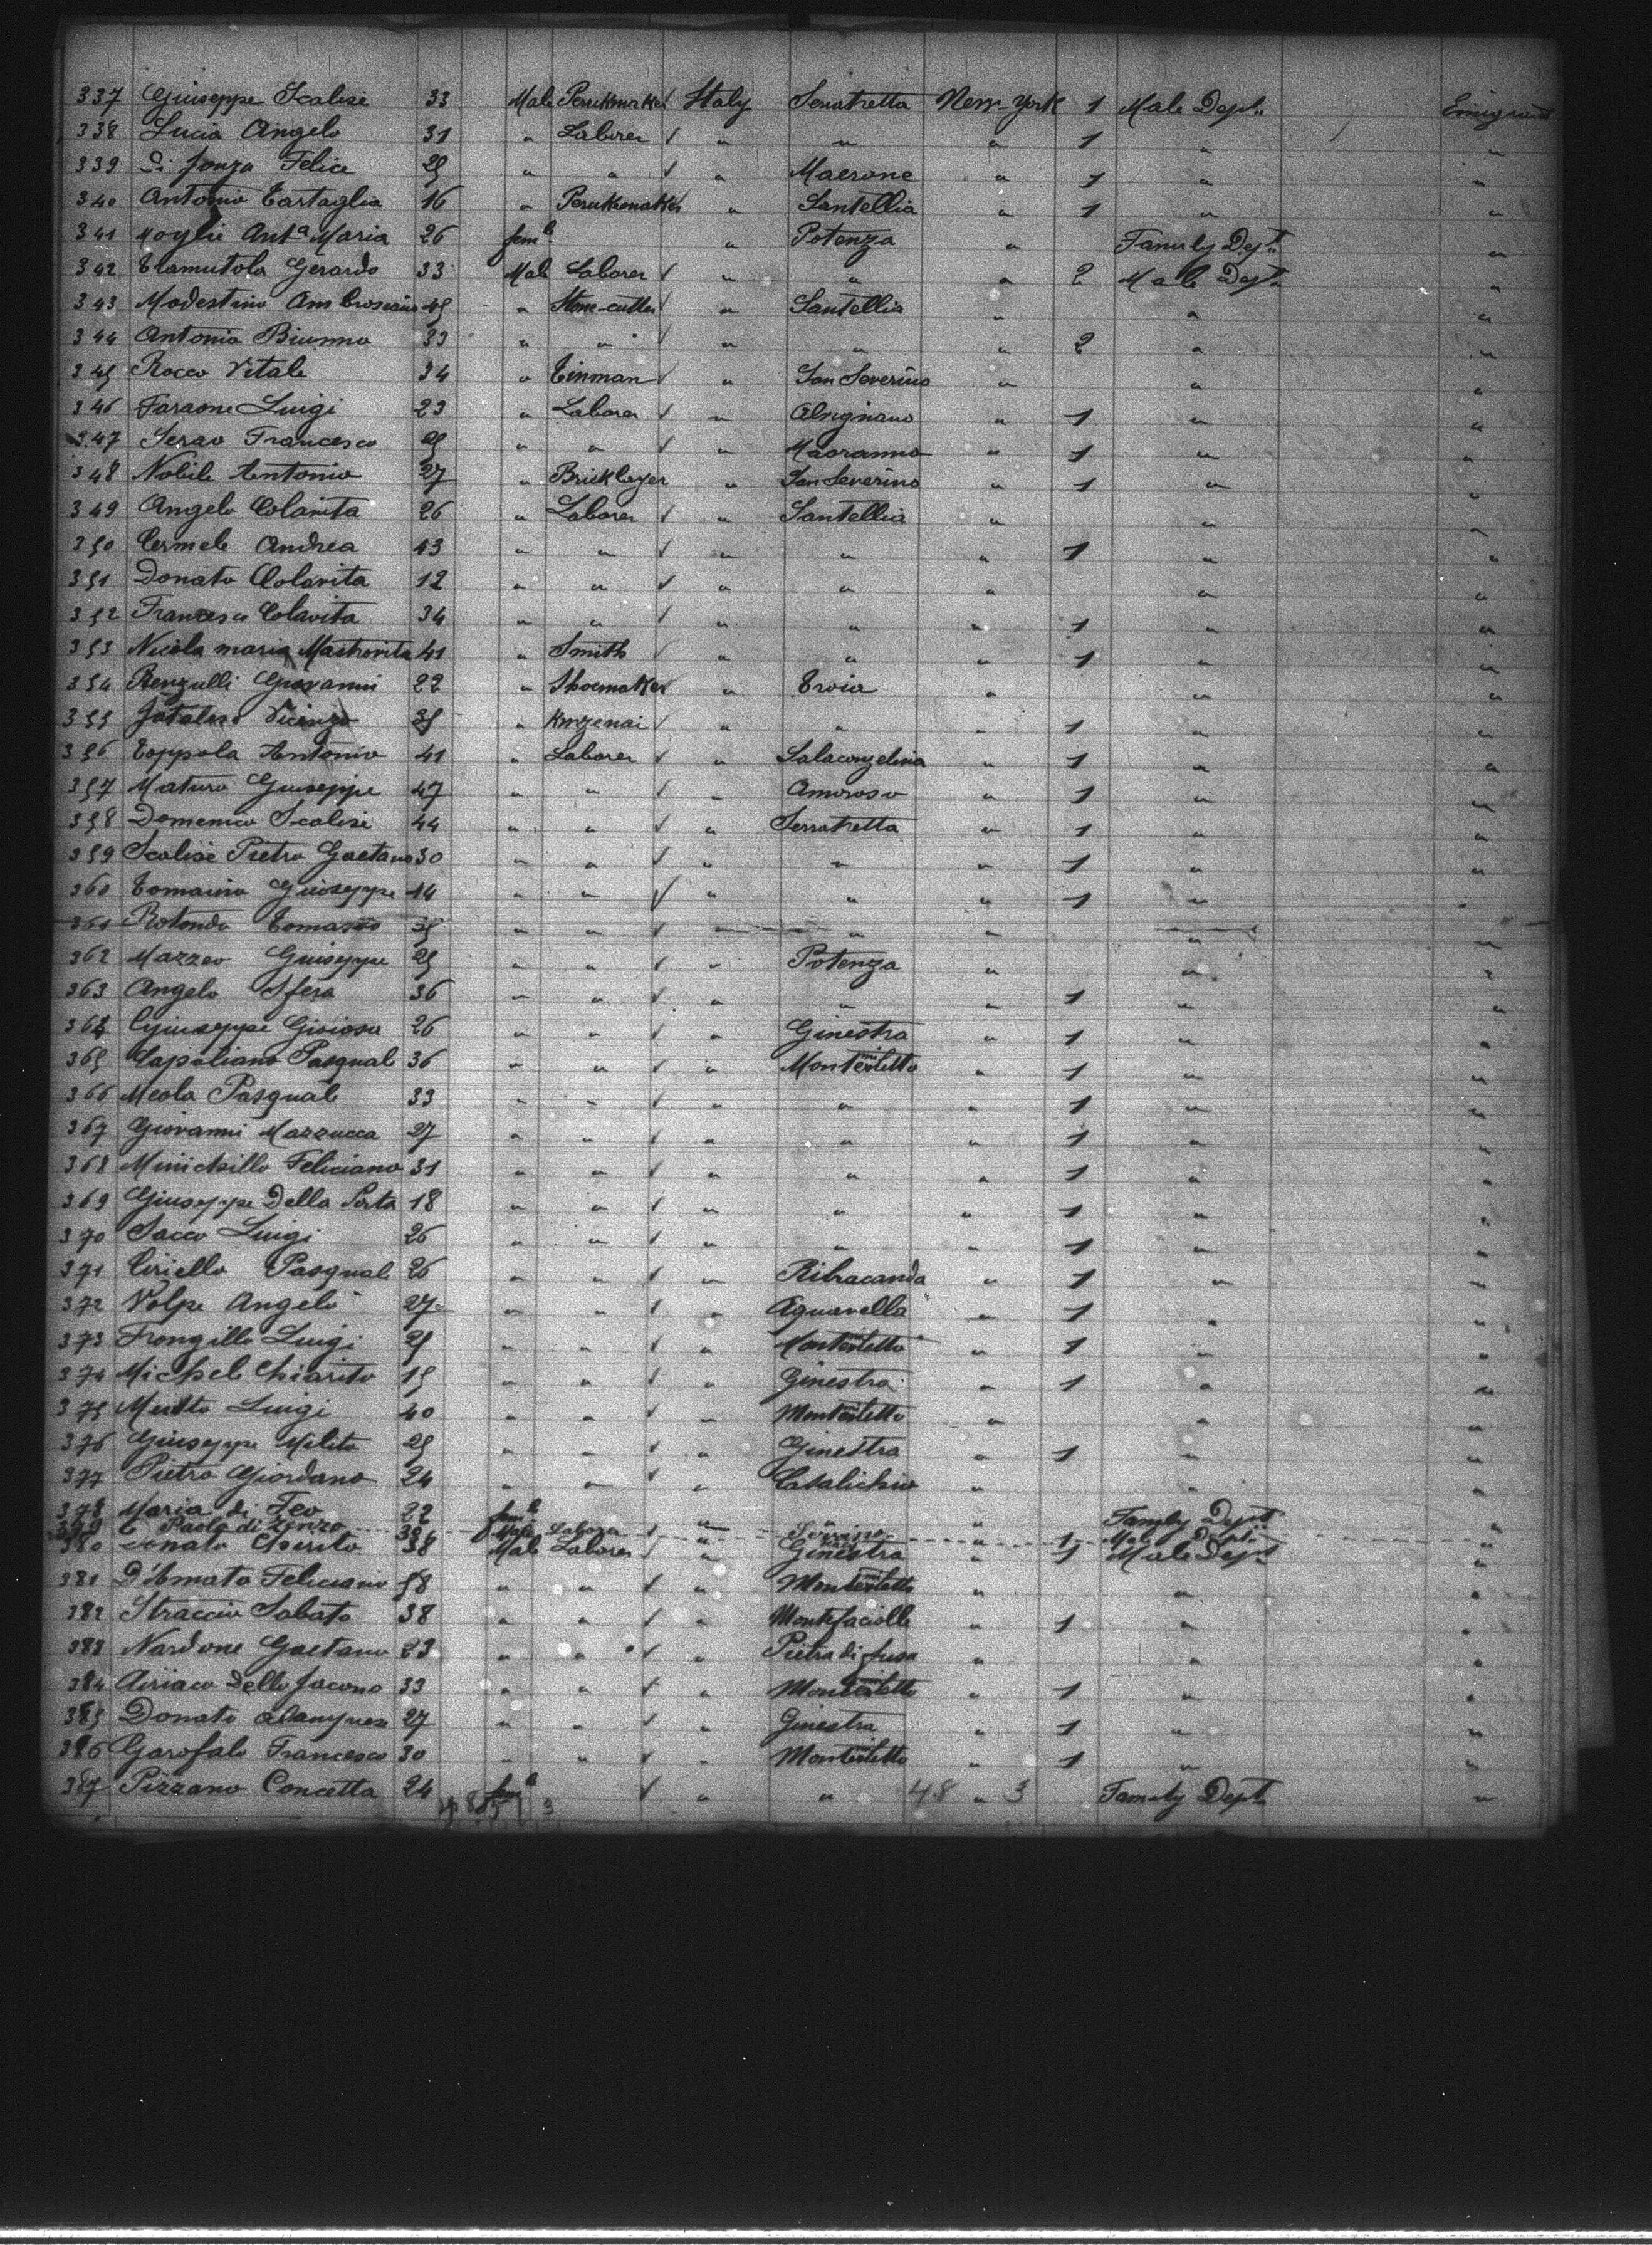 337 Giuseppe Scalise 33 Male Perukmaker Italy Serratretta New-York 1 Male Dept. Emigrant
338 Lucia Angelo 31 " Laborer " " " 1 " "
339 Di Jonza Felice 25 " " " Macrone " 1 " "
340 Antonio Tartaglia 16 " Perukemaker " Santellia " 1 " "
341 Moglie Antª Maria 26 fem.e " Potenza " Family Dept. "
342 Tramutola Gerardo 33 Male Laborer " " " 2 Male Dept. "
343 Modestino Ambrosiano 45 " Stone-cutter " Santellia " " "
344 Antonio Biunno 33 " " " " " 2 " "
345 Rocco Vitale 34 " Tinman " San Severino " " "
346 Faraone Luigi 23 " Laborer " Alvignano " 1 " "
347 Serao Francesco 25 " " " " 1 " "
348 Nobile Antonio 27 " Bricklayer " San Severino " 1 " "
349 Angelo Colavita 26 " Laborer " Santellia " " "
350 Cermele Andrea 43 " " " " " 1 " "
351 Donato Colavita 12 " " " " " " "
352 Francesco Colavita 34 " " " " " 1 " "
353 Nicola maria Mastrovita 41 " Smith " " " 1 " "
354 Renzulli Giovanni 22 " Shoemaker " Troia " " "
355 Vicenzo 35 " " " " 1 " "
356 Toppola Antonio 41 " Laborer " Salaconzelina " 1 " "
357 Maturo Giuseppe 47 " " " Amoroso " 1 " "
358 Domenico Scalise 44 " " " Serratretta " 1 " "
359 Scalise Pietro Gaetano 30 " " " " " 1 " "
360 Tomaino Giuseppe 44 " " " " " 1 " "
361 Rotondo Tomasso 35 " " " " " " "
362 Mazzeo Giuseppe 25 " " " Potenza " " "
363 Angelo Sfera 36 " " " " " 1 " "
364 Giuseppe Gioiosa 26 " " " Ginestra " 1 " "
365 Capoliano Pasquale 36 " " " Montemiletto " 1 " "
366 Meola Pasquale 33 " " " " " 1 " "
367 Giovanni Mazzucca 27 " " " " " 1 " "
368 Minichillo Feliciano 31 " " " " " 1 " "
369 Giuseppe Della Porta 18 " " " " " 1 " "
370 Sacco Luigi 26 " " " " " 1 " "
371 Ciriello Pasquale 26 " " " Ribracanda " 1 " "
372 Volpe Angelo 27 " " " Aquavella " 1 " "
373 Frongillo Luigi 25 " " " Montemiletto " 1 " "
374 Michele Chiarito 15 " " " Ginestra " 1 " "
375 Luigi 40 " " " Montemiletto " " "
376 Giuseppe Milito 25 " " " Ginestra " 1 " "
377 Pietro Giordano 24 " " " " " "
378 Maria di Feo 22 fem.e " " " Family Dept. "
379 Paolo di 38 Male Labora " Serrino " 1 Male Dept. "
380 Donato 38 Male Laborer " Ginestra " 1 Male Dept "
381 D'Amato Feliciano 58 " " " Montemiletto " " "
382 Straccio Sabato 38 " " " Montefaciolle " 1 " "
383 Nardone Gaetano 23 " " " Pietra di fusa " " "
384 Ciriaco Dello Jacono 33 " " " Montemiletto " 1 " "
385 Donato 27 " " " Ginestra " 1 " "
386 Garofalo Francesco 30 " " " Montemiletto " 1 " "
387 Pizzano Concetta 24 fem.e " " 48 " 3 Family Dept. "
3